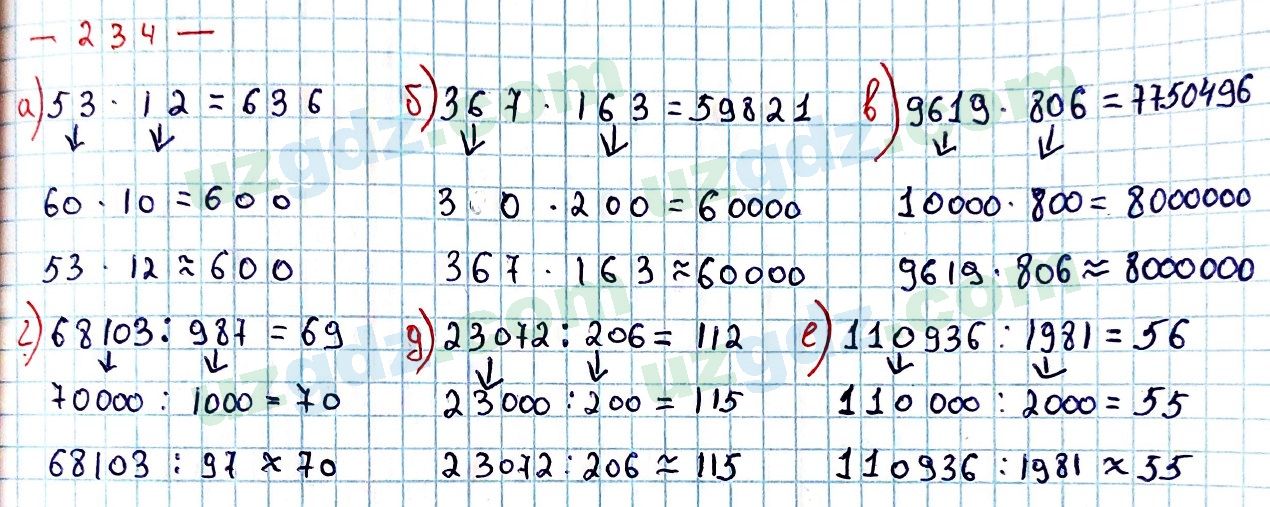 — 234 —
а) 53 · 12 = 636
60 · 10 = 600
53 · 12 ≈ 600
б) 367 · 163 = 59821
3 0 · 200 = 60000
367 · 163 ≈ 60000
в) 9619 · 806 = 7750496
10000 · 800 = 8000000
9619 · 806 ≈ 8000000
г) 68103 : 987 = 69
70000 : 1000 = 70
68103 : 97 ≈ 70
д) 23072 : 206 = 112
23000 : 200 = 115
23072 : 206 ≈ 115
е) 110936 : 1981 = 56
110 000 : 2000 = 55
110936 : 1981 ≈ 55
uzgdz.com
uzgdz.com
uzgdz.com
uzgdz.com